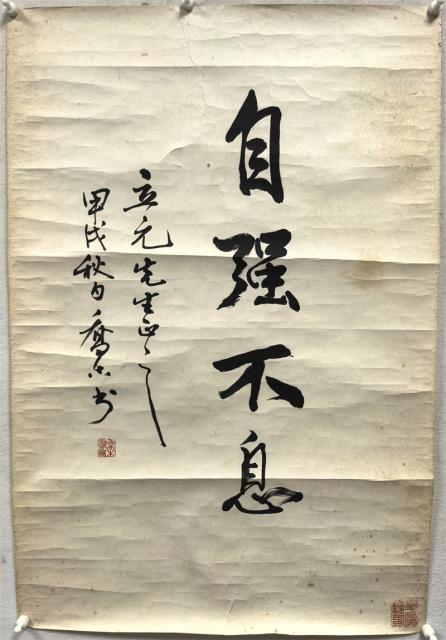 自强不息
立元先生正之
甲戌秋日乔木书